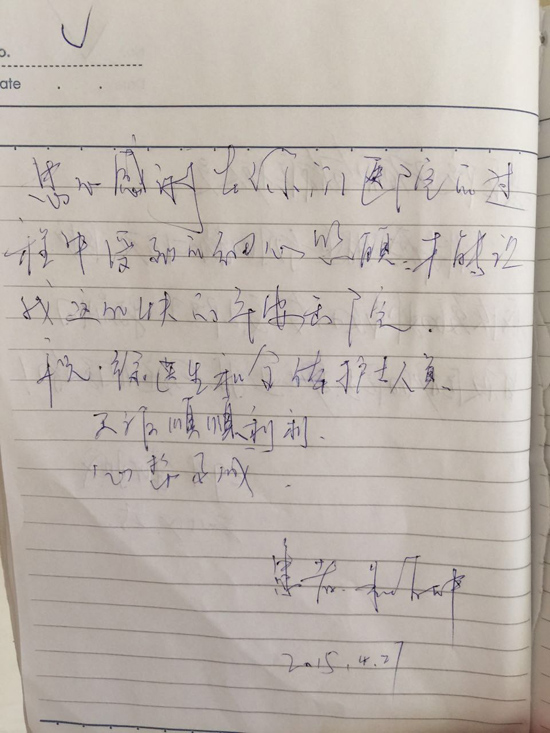 o.
ate . .
忠心感谢在你们医院的过
程中受到的细心照顾、才能让
我这么快的平安出院.
祝.徐医生和全体护士人员
工作顺顺利利.
心想事成.
患者.
2015.4.27